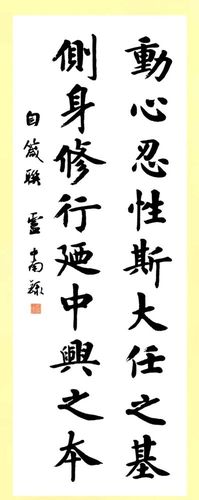 動心忍性斯大任之基
側身修行廼中興之本
自箴聯 盧中南録